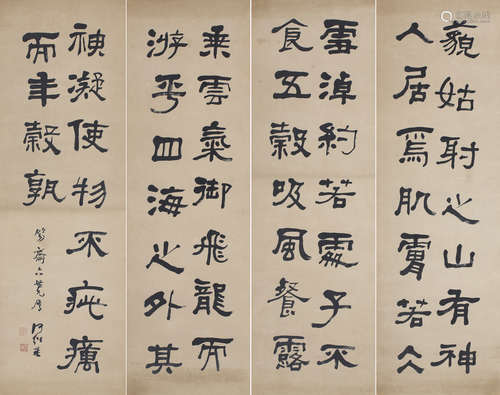 藐姑射之山有神
人居焉肌膚若仌
雪淖約若處子不
食五穀吸風餐露
乘雲氣御飛龍而
游乎四海之外其
神凝使物不疵癘
而年穀孰
何紹基